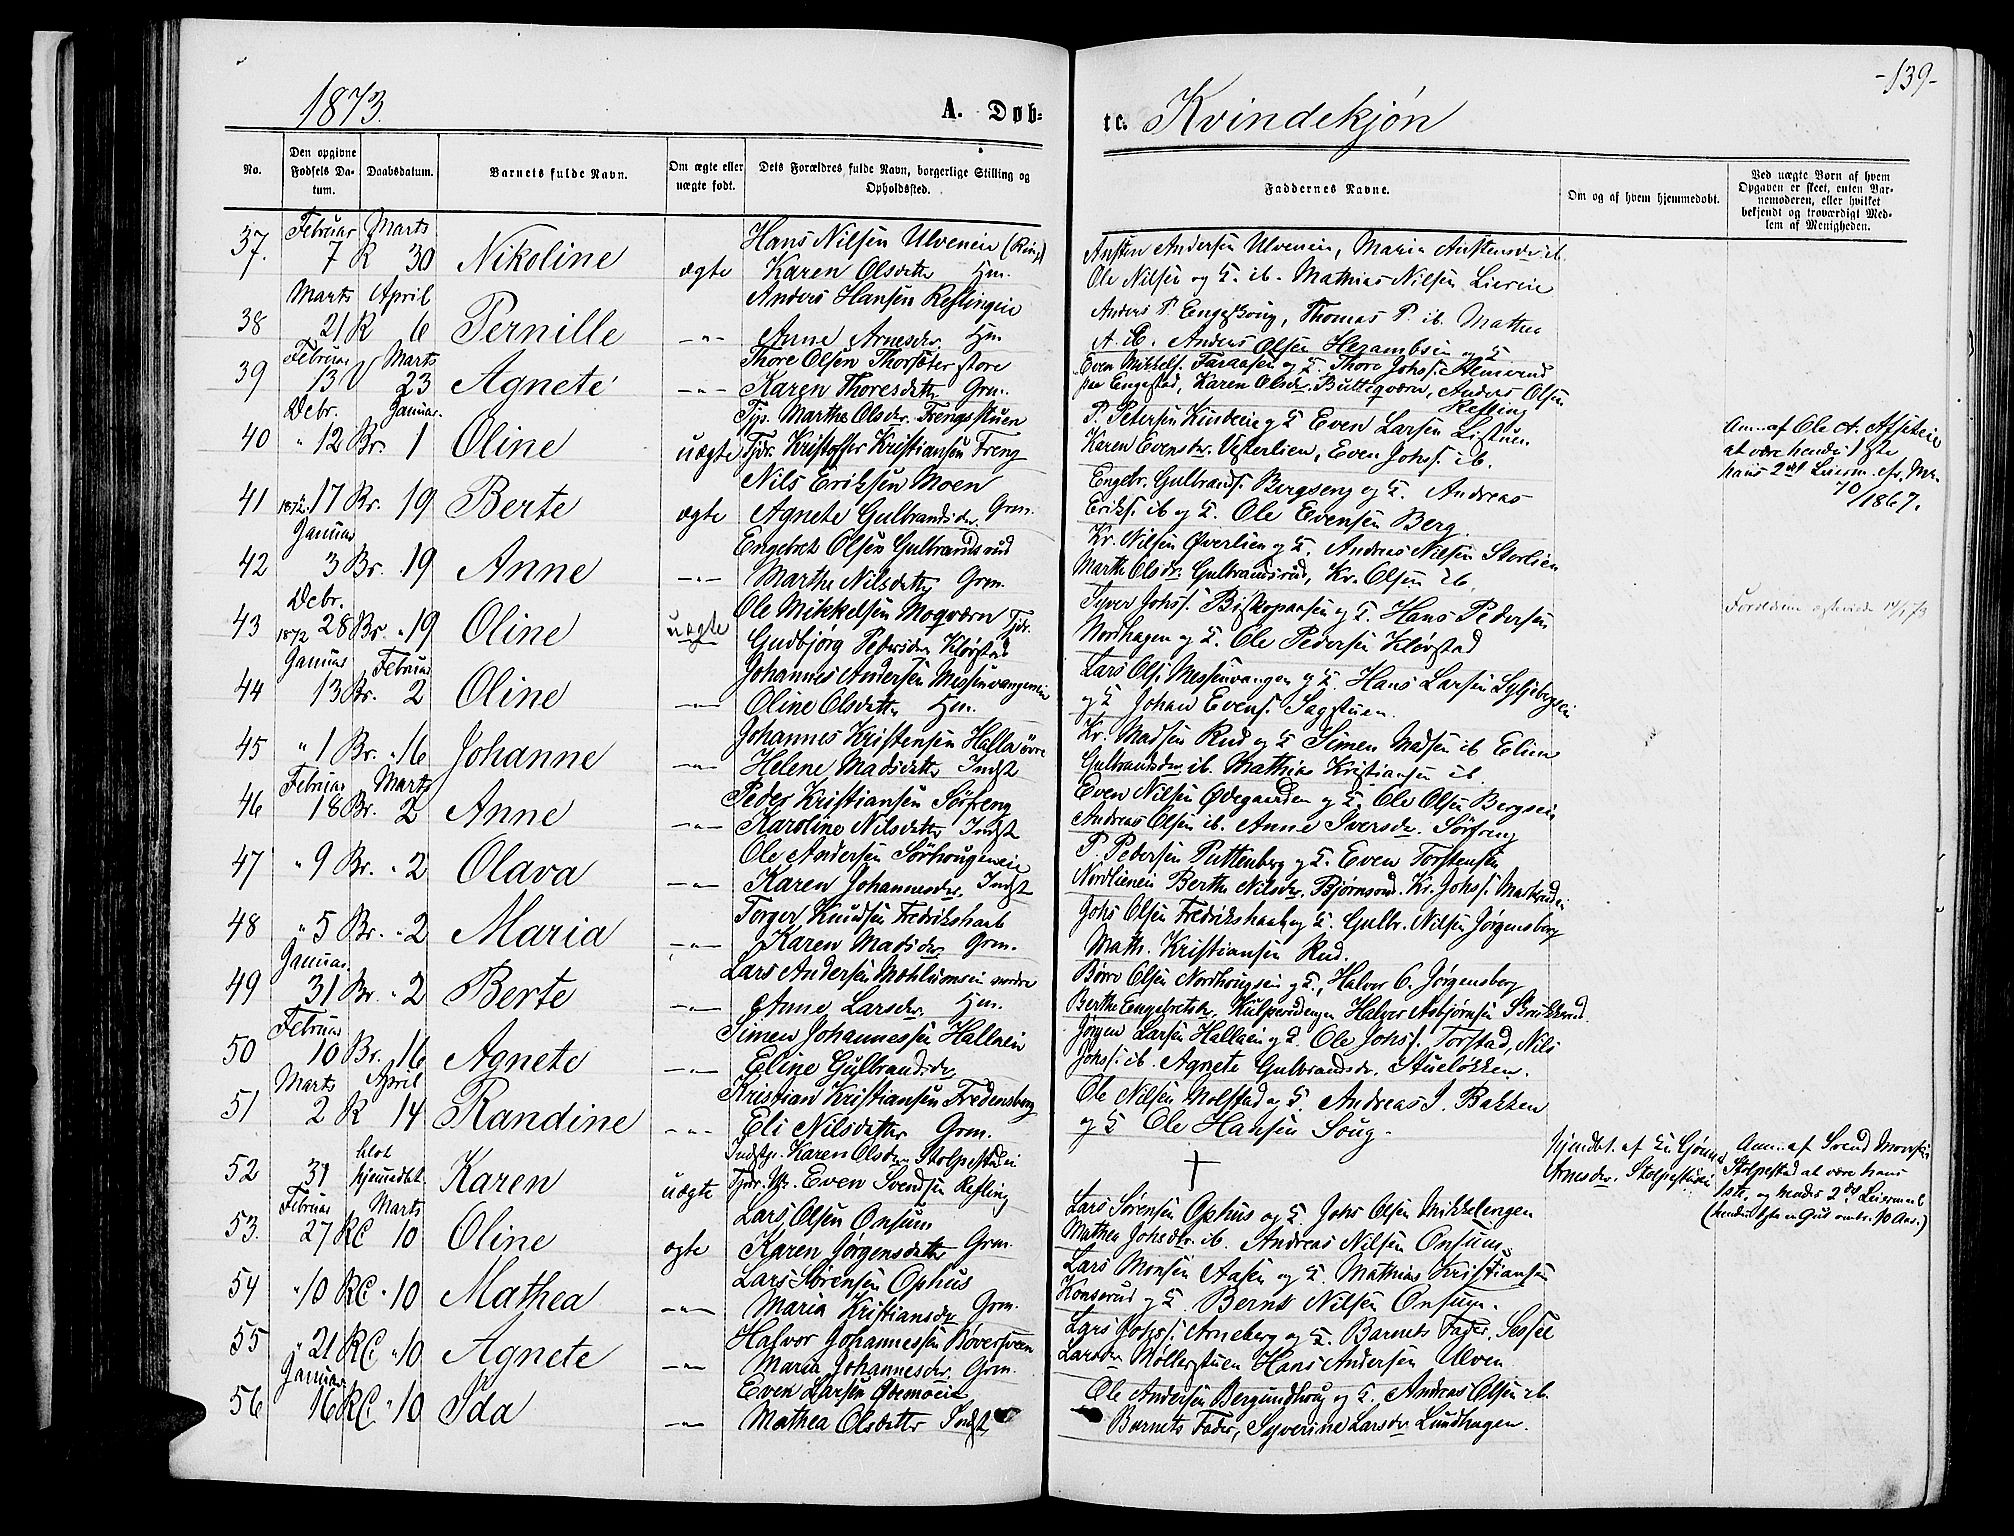 1873.
A. Døb-
te. Kvindekjøn
-139-
No.
Den opgivne Fødsels Da-tum.
Daabsdatum.
Barnets fulde Navn.
Om ægte eller uægte født.
Dets Forældres fulde Navn, borgerlige Stilling og Opholdssted.
Faddernes Navne.
Om og af hvem hjemmedøbt.
Ved uægte Børn af hvem Opgaven er skeet, enten Bar-nemoderen, eller hvilket bekjendt og troværdigt Med-lem af Menigheden.
37. Februar 7 Marts R 30 Nikoline ægte Hans Nilsen Ulveneie
Karen Olsdatter Hm.
Austen Andersen Ulveneie, Maria Austensdr ib.
Ole Nilsen og ib. Mathias Nilsen Liereie
38 Marts 21 April R 6 Pernille -"- Anders Hansen Reflingeie
Anne Arnesdr. Hm
Anders P. Engeshoug, Thomas P. ib. Mathea
A. ib. Anders Olsen
39 Februar 13 Marts V 23 Agnete -"- Thore Olsen Thorsæter store
Karen Thoresdatter Grm.
Even Mikkels. og Thore Johs.
Engestad, Karen Olsdr. Butteqværn, Anders Olsen
Refling
40 Debr. " 12 Januar Br. 1 Oline uægte Tjp. Marthe Olsdr. Frengsstuen
Tjdr. Kristoffer Kristiansen Freng
P. Petersen og Even Larsen Listuen
Karen Evensdr. Vesterlien, Even Johs. ib.
Anm. af Ole A.
at være hendes 1ste
hans 2det Leierm. cfr. No.
70/1867.
41 1872. 17 Br. 19 Berte ægte Nils Eriksen Moen
Agnete Gulbrandsdr. Grm.
Engebr. Gulbrands. Bergseng og Andreas
Eriks. ib og Ole Evensen Berg.
42 Januar 3 Br. 19 Anne -"- Engebret Olsen Gulbrandsrud
Marthe Nilsdatter Grm.
Kr. Nilsen Øverlien og Andreas Nilsen Storlien
Marth Olsdr. Gulbrandsrud, Kr. Olsen ib.
43 Debr. 1872 28 Br. " 19 Oline uægte Ole Mikkelsen Moqværn Tjdr.
Gudbjørg Pedersdr. Klørstad
Syver Johs. og Hans Pedersen
Nordhagen og Ole Pedersen Klørstad
44 Januar 13 Februar Br. 2 Oline -"- Johannes Andersen Messenvangeneie
Oline Olsdatter Hm.
Lars Ols. Messenvangen og Hans Larsen
og Johan Evens. Sagstuen.
45 " 1 Br. " 16 Johanne -"- Johannes Kristensen Halla øvre
Helene Madsdatter Indst
Kr. Madsen Rud og Simen Madsen ib Eline
Gulbrandsdr. ib. Mathias Kristiansen ib.
46 Februar 18 Marts Br. 2 Anne -"- Peder Kristiansen Sørfreng
Karoline Nilsdatter Indst
Even Nilsen Ødegaarden og Ole Olsen Bergseie
Andreas Olsen ib. Anne Iversdr. Sørfreng
47 " 9 Br. " 2 Olava -"- Ole Andersen Sørhougeneie
Karen Johannesdr. Indst
P. Pedersen Puttenberg og Even Torstensen
Nordlieneie Berthe Nilsdr. Bjørnsrud. Kr. Johs.
48 " 5 Br. " 2 Maria -"- Torger Knudsen Fredrikshaab
Karen Madsdr. Grm.
Johs Olsen Fredrikshaab og Gulbr. Nilsen Jørgensberg
Math. Kristiansen Rud.
49 Januar. 31 Br. " 2 Berte -"- Lars Andersen nordre
Anne Larsdr. Hm.
Børre Olsen Nordhougen og Halvor C. Jørgensberg
Berthe Engebretsdr. Halvor Asbjørnsen
50 Februar 10 Br. " 16 Agnete -"- Simen Johannessen Hallaeie
Eline Gulbrandsdr
Jørgen Larsen Hallaeie og Ole Johs. Torstad, Nils
Johs. ib. Agnete Gulbrandsdr. Stueløkken.
51 Marts 2 April R 14 Randine -"- Kristian Kristiansen Fredensberg
Eli Nilsdatter Grm.
Ole Nilsen Molstad og Andreas J. Bakken
og Ole Hansen Soug.
52 31 hjemmedbt. Karen uægte Indstp. Karen Olsdr. Stolpestadeie
Tjdr. Even Svendsen Refling
†
hjemdbt. af
Arnesdr. Stolpestueie
Anm. af Svend Monsen
Stolpestad at være hans
1ste, og hendes 2det Leiermaal
53. Februar 27 Marts RC 10 Oline ægte Lars Olsen Onsum
Karen Jørgensdatter Grm.
Lars Sørensen Ophus og Johs Olsen Mikkelengen
Mathea Johsdtr. ib. Andreas Nilsen Onsum.
54 " 10 RC " 10 Mathea -"- Lars Sørensen Ophus
Maria Kristiansdr Grm.
Lars Monsen Aasen og Mathias Kristiansen
Konserud og Bernt Nilsen Onsum.
55 " 21 RC " 10 Agnete -"- Halvor Johannessen Bøversveen
Maria Johannesdr. Grm.
Lars Johs. Arneberg og Barnets Fader, Sessel
Larsdr Møllerstuen Hans Andersen Ulven
56 Januar 16 RC " 10 Ida -"- Even Larsen Ødemoeie
Mathea Olsdatter Indst
Ole Andersen Bergundhoug og Andreas Olsen ib.
Barnets Fader, Syverine Larsdr Lundhagen.